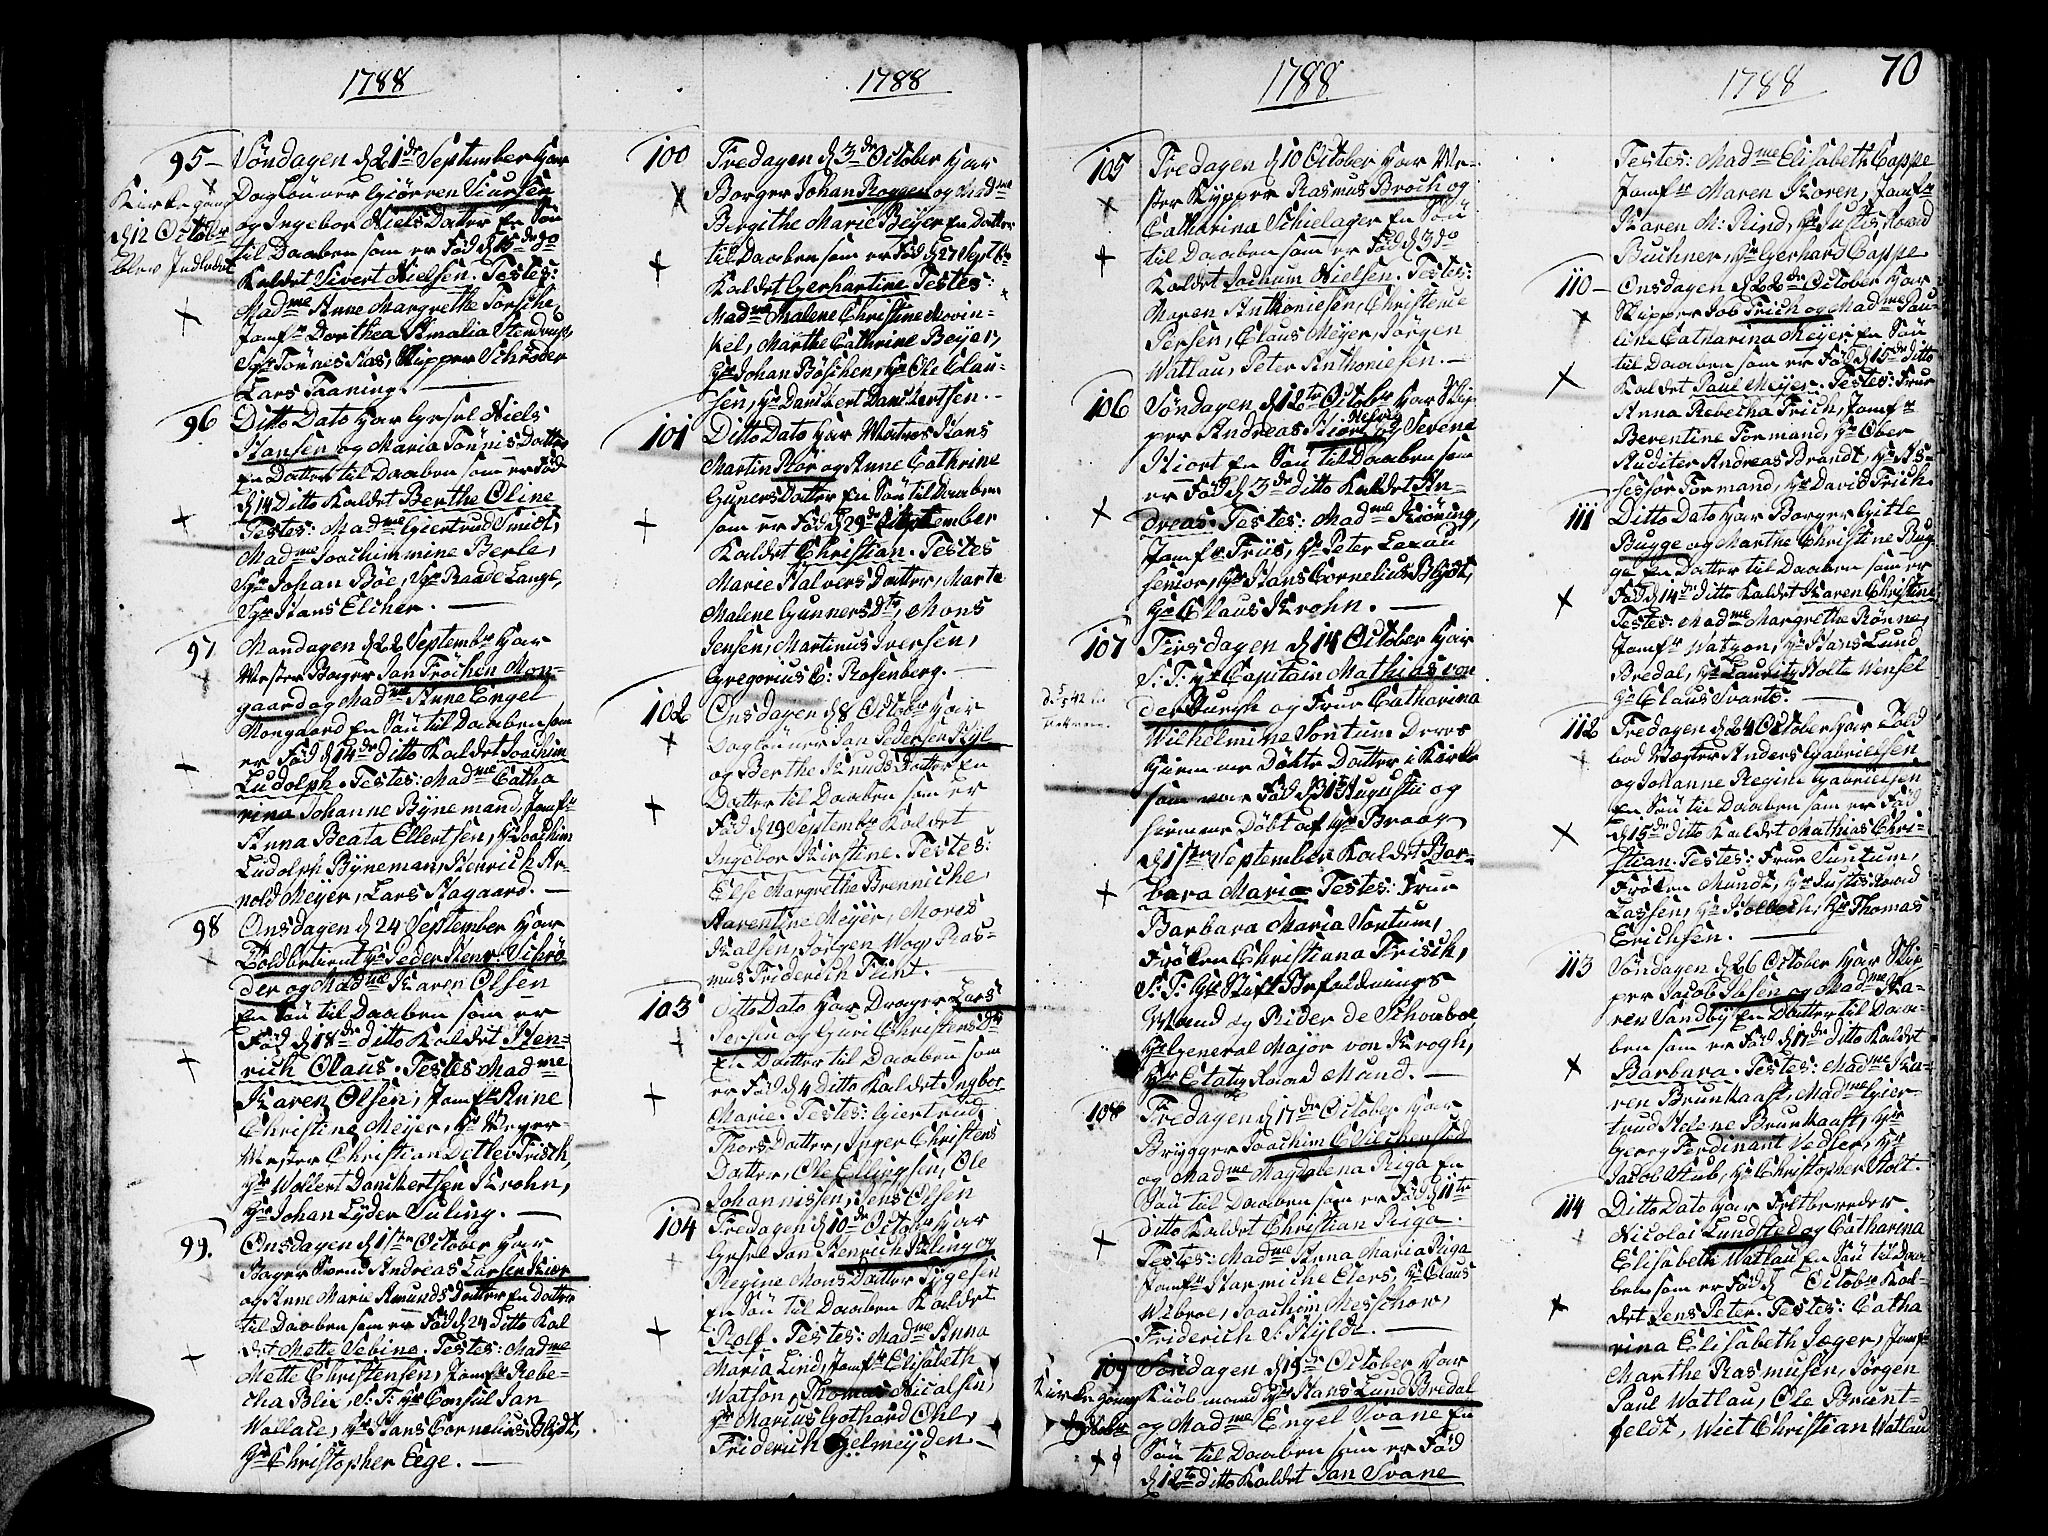 1788
95 Söndagen d 21de September har
Daglönner Giörren Siursen
og Ingebor Niels Datter En Sön
til Daaben som er Föd d 15de do
Kaldet Sivert Nielsen. Testes:
Madme Anne Margrethe Torsche,
Jomfr Dorthea Amalia Stendrup,
Sr Tönnes Aas, Skipper Schröder
Lars Taaning.
Kirkegang
d 12 October
blev Indledet
96 Ditto Dato har Gesel Niels
Hansen og Maria Tönnis Datter
En Datter til Daaben som er Föd
d 14 Ditto Kaldet Berthe Oline
Testes: Madme Giertrud Smidt,
Madme Joachimmine Berle,
Sr Johan Böe, Sr Baade Lange,
Sr Hans Elcher.
97 Mandagen d 22 Septembr har
Mester Bager Jan Fröchen Mon-
gaard og Madme Anne Engel
Mongaard En Sön til Daaben som
er Föd d 14de Ditto Kaldet Joachim
Ludolph. Testes: Madme Catha
rina Johanne Bÿnemand, Jomfr
Anna Beata Ellertsen, Hr Joachim
Ludolph Bÿneman, Henrich Ar-
nold Meÿer, Lars Hagaard.
98 Onsdagen d 24 September har
Toldbetient Hr Peder Henr: Schrö-
der og Madme Karen Olsen
En Sön til Daaben som er
Föd d 18de ditto Kaldet Hen-
rich Claus. Testes Madme
Karen Olsen, Jomfr Anne
Christine Meÿer, Hr Veyer-
Mester Christian Ditlev Frisch,
Hr Woldert Danckertsen Krohn,
Hr Johan Lÿder Suling.
99. Onsdagen d 1ste October har
Bager Svend Andreas Larsen Kier
og Anne Marie Amunds Datter En Datter
til Daaben som er Föd d 24 Ditto Kal
det Mette Sebine. Testes: Madme
Mette Christensen, Jomfr Rebe-
cha Blix, S. T. Hr Consul Jan
Wallace, Hr Hans Cornelius Blÿdt,
Hr Christopher Ege.
1788
100 Fredagen d 3de October har
Borger Johan Roggen og Madme
Bergithe Marie Beÿer En Datter
til Daaben som er Föd d 27 Septbr
Kaldet Gerhartine Testes:
Madme Malene Christine Mowin-
kel, Marthe Cathrine Beÿer,
Hr Johan Böschen, Hr Ole Clau-
sen, Hr Danckert Danckertsen.
101 Ditto Dato har Matros Hans
Martin Rör og Anne Cathrine
Guners Datter En Sön til Daaben
som er Föd d 29de September
Kaldet Christian. Testes
Marie Halvers Datter, Marte
Malene Gunners Dtr, Mons
Jensen, Martinus Iversen,
Gregorius C: Rosenberg.
102 Onsdagen d 8 Octobr har
Daglönner Jan Pedersen
og Berthe Knuds Datter En
Datter til Daaben som er
Föd d 29 Septembr Kaldet
Ingebor Kirstine. Testes:
Else Margrethe Brenniche
Harentine Meÿer, Mores
Kalsen, Jörgen Wog, Ras-
mus Friderich Flint.
103 Ditto Dato har Drager Lars
Persen og Guri Christens Dtr
En Datter til Daaben som
er Föd d 4 ditto Kaldet Ingber
Marie. Testes: Giertrud
Thors Datter, Inger Christens
Datter, Ole Ellingsen, Ole
Johannissen, Jens Olsen
104 Fredagen d 10de Octobr har
Gesel Jan Henrich Kling og
Regine Mons Datter Tÿgesen
En Sön til Daaben Kaldet
Rolf. Testes: Madme Anna
Maria Lind, Jomfr Elisabeth
Watson, Thomas Nicalsen,
Hr Marius Gothard Ohl,
Friderich Gelmeÿden
1788
105 Fredagen d 10 October har Me-
ster Skipper Rasmus Broch og
Catharina Schielager En Sön
til Daaben som er Föd d 3 do
Kaldet Jochum Nielsen. Testes:
Maren Anthoniesen, Christence
Persen, Claus Meÿer, Jörgen
Watlau, Peter Anthoniesen.
106 Söndagen d 12te Octobr har Skip
per Andreas Hiort og Helvig Severine
Hiort En Sön til Daaben som
er Föd d 3de ditto Kaldet An-
dreas. Testes: Madme Kröning,
Jomfr Friis, Hr Peter Lexau
Senior, Hr Hans Cornelius Blÿdt,
Hr Claus Krohn.
107 Tirsdagen d 14 October har
S: T: Hr Capitain Mathias von
der Burgh og Frue Catharina
Wilhelmine Sontum Deres
hiemme Döbte Datter i Kirke
som var Föd d 31 Augusti og
hiemme Döbt af Hr Braag
d 1ste September Kaldet Bar-
bara Maria Testes: Frue
Barbara Maria Sontum,
Fröken Christiana Frisch,
S. T. Hr Stift Befaldnings
Mand og Rider de Schouboe,
Hr General Major von Krogh,
Hr Etatz Raad Mund.
108 Fredagen d 17de October har
Brÿgger Joachim C Silchenstad
og Madme Magdalena Riga En
Sön til Daaben som er Föd d 11te
ditto Kaldet Christian Riga.
Testes: Madme Anna Maria Riga
Jomfr Harmiche Elers, Hr Claus
Wibroe, Joachim Messchow,
Friderich S: Kÿldt.
109 Söndagen d 19de October har
Kiöbmand Hr Hans Lund Bredal
og Madme Engel Svane En
Sön til Daaben som er Föd
d 12te ditto Kaldet Jan Svane
Kirkegang
1788
70
Testes: Madme Elisabeth Cappe
Jomfr Maren Koren, Jomfr
Karen M: Rind, Hr Justis Raad
Buchner, Hr Gerhard Cappe
110 Onsdagen d 22de October har
Skipper Job Frich og Madme Pau-
line Catharina Meÿer En Sön
til Daaben som er Föd d 15de ditto
Kaldet Paul Meÿer. Testes: Frue
Anna Rebecha Frich, Jomfr
Berentine Formand, Hr Ober
Auditer Andreas Brandt, Hr As-
sessor Formand, Hr David Frich.
111 Ditto Dato har Borger Gitle
Bugge og Marthe Christine Bug-
ge En Datter til Daaben som er
Föd d 14de ditto Kaldet Karen Christine
Testes: Madme Margrethe Rönne,
Jomfr Watson, Hr Hans Lund
Bredal, Hr Lauritz Holte Wensel
Hr Claus Svarts.
112 Fredagen d 24 October har Told
bod Vægter Anders Gabrielsen
og Johanne Regine Gabrielsen
En Sön til Daaben som er Föd
d 15de ditto Kaldet Mathias Chri-
stian. Testes: Frue Suntum,
Fröken Mundt, Hr Justis Raad
Lassen, Hr Holbech, Hr Thomas
Erichsen.
113 Söndagen d 26 October har Skip
per Jacob Ibsen og Madme Ka-
ren Sandbÿ En Datter til Daa-
ben som er Föd d 17de ditto Kaldet
Barbara. Testes: Madme Ka-
ren Brunkaast, Madme Gier-
trud Helene Brunkaast, Hr
Georg Ferdinant Vedler, Hr
Jacob Stub, Hr Christopher Stolt.
114 Ditto Dato har Feltbereder
Nicolai Lundsted og Catharina
Elisabeth Watlau En Sön til Daa
ben som er Föd d Octobr Kal-
det Jens Peter. Testes: Catha
rina Elisabeth Jæger, Jomfr
Marthe Rasmusen, Jörgen
Paul Watlau, Ole Brunt-
feldt, Wiet Christian Watlau